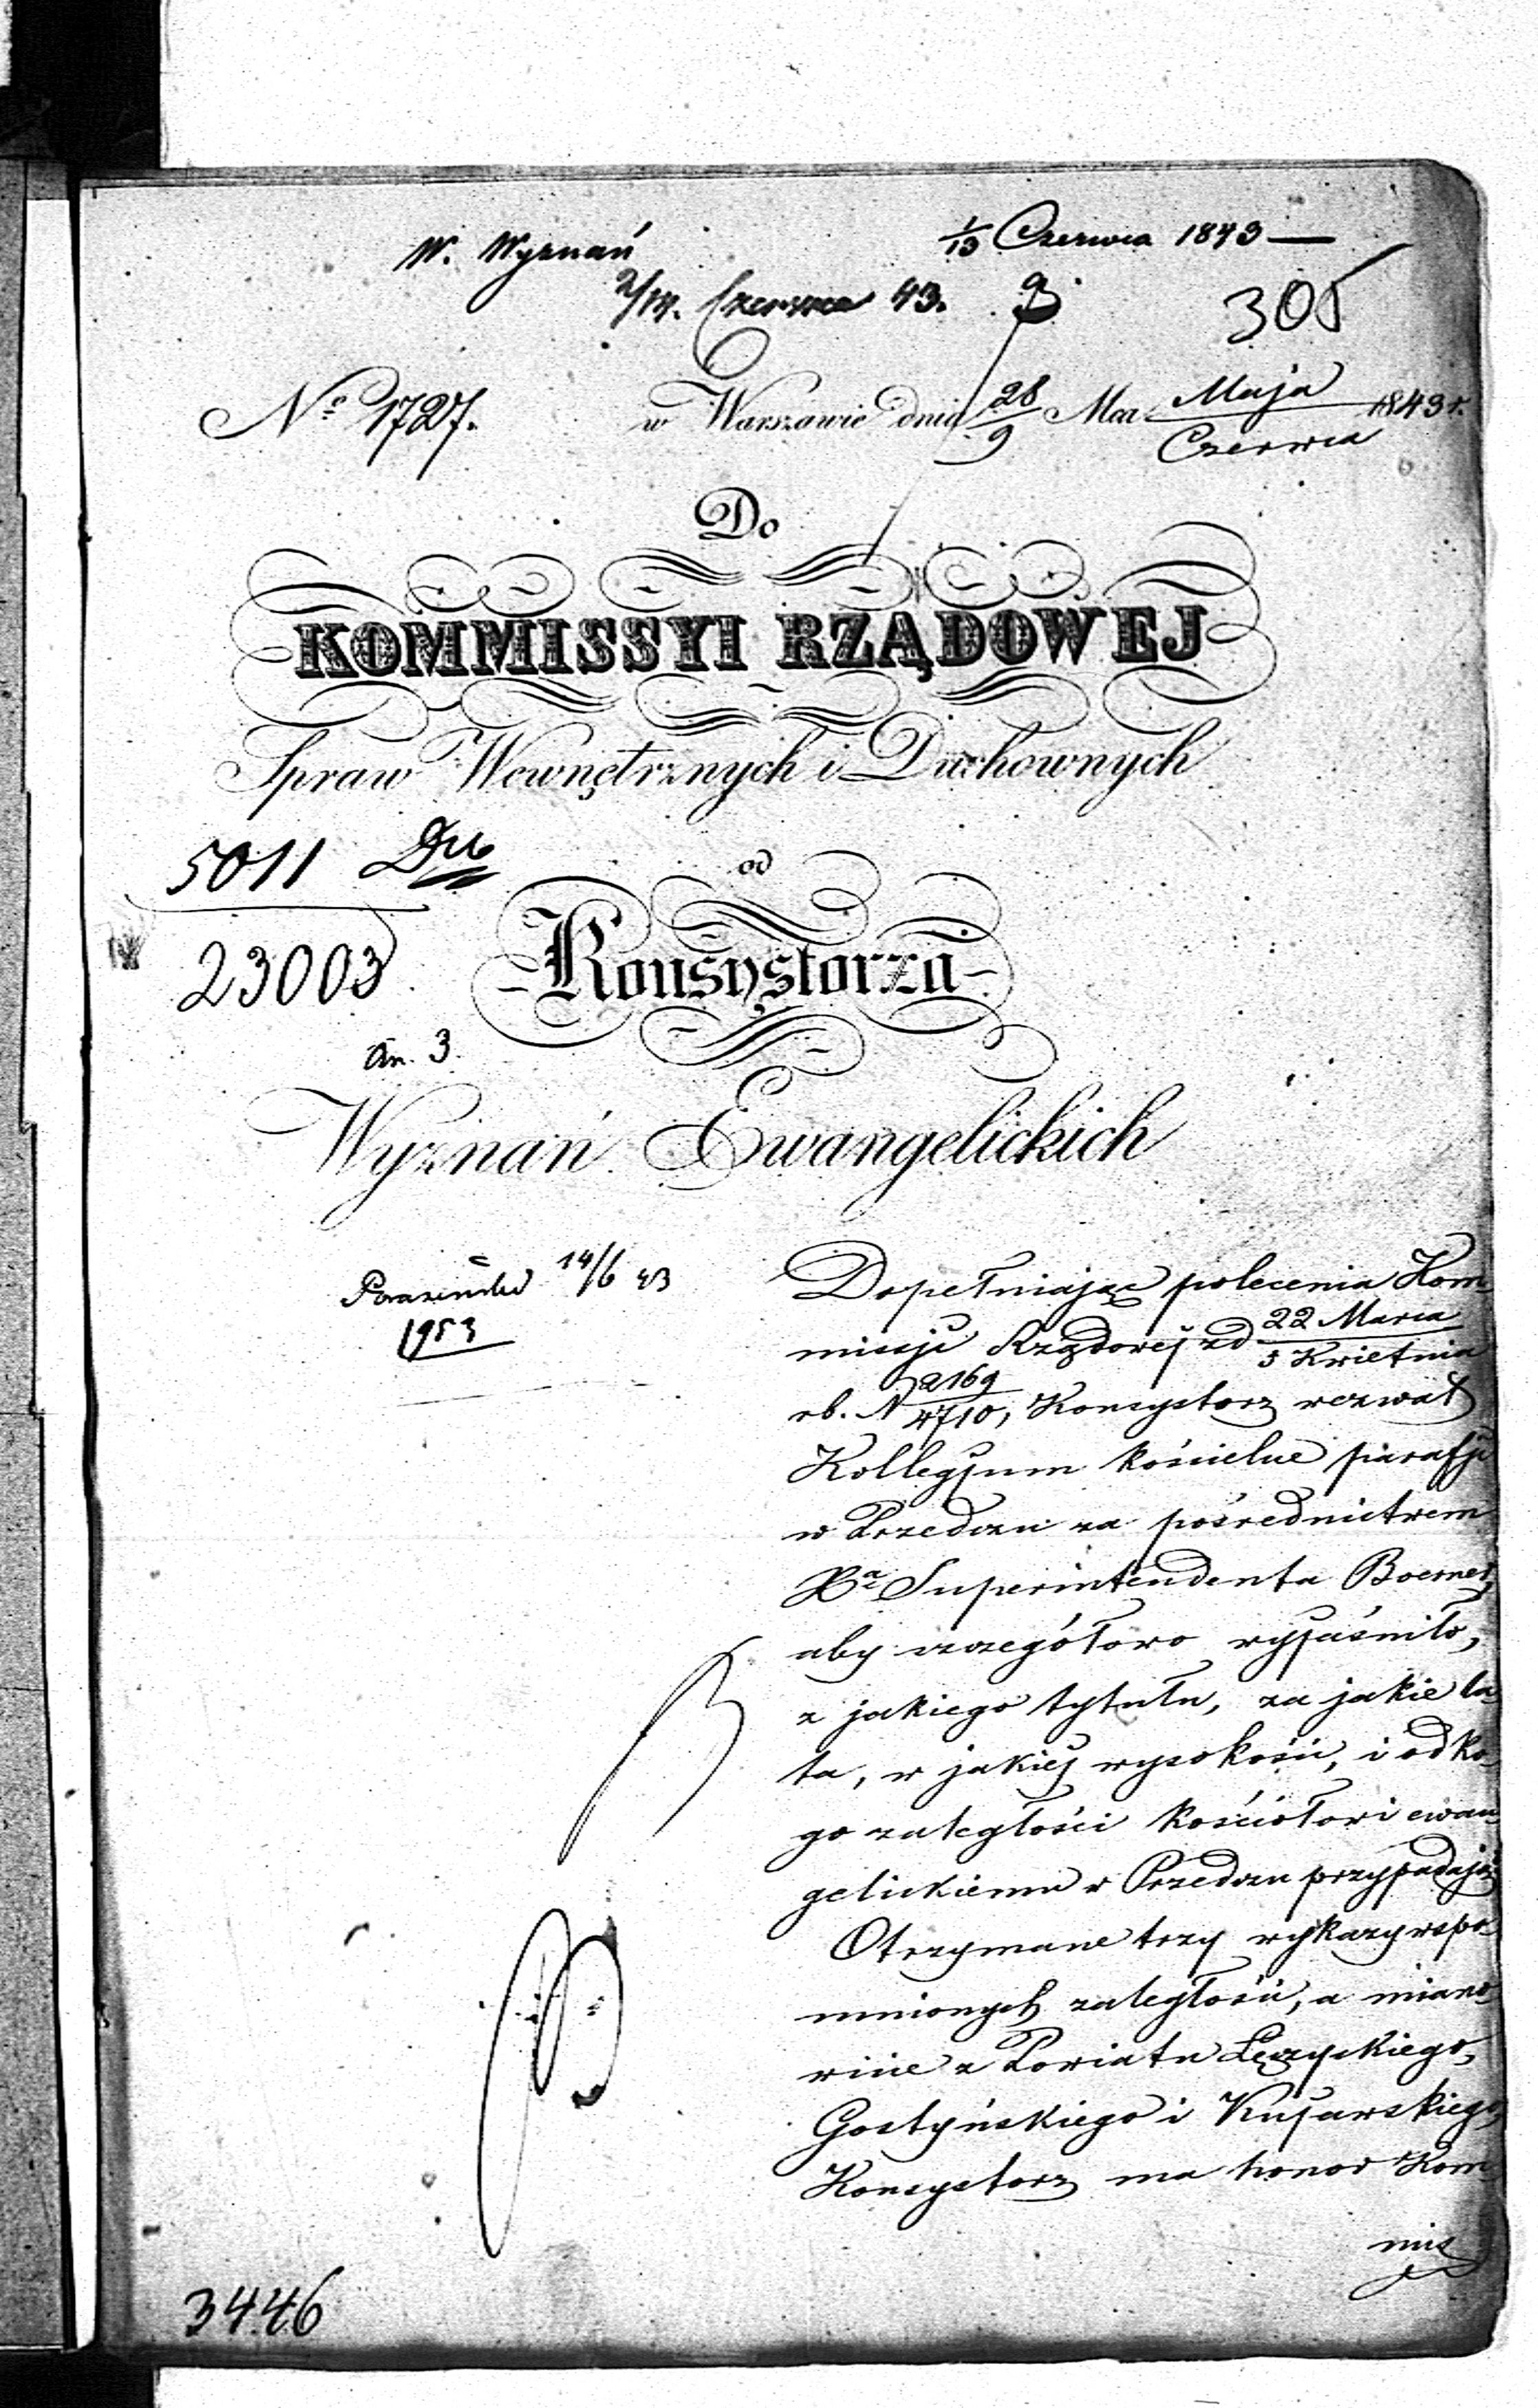 W. Wyznań
1/13 Czerwca 1843
2/14. Czerwca 43.
305
Nº 1727.
w Warszawie dnia 28/9 Mca Maja/Czerwca 1843 r.
Do
KOMMISSYI RZĄDOWEJ
Spraw Wewnętrznych i Duchownych
5011
23003
od
Konsystorza
an. 3.
Wyznań Ewangelickich
14/6 43
1953
Dopełniając polecenia Kom-
missji Rządowej zd 22 Marca/3 Kwietnia
rb. N 2169/4710, Konsystorz wezwał
Kollegjum kościelne parafji
w Przedczu za pośrednictwem
Xa Superintendenta Boerner,
aby szczegółowo wyjaśniło,
z jakiego tytułu, za jakie la-
ta, w jakiej wysokości, i od ko-
go zaległości kościołowi ewan-
gelickiemu w Przedczu przypadają
Otrzymane trzy wykazy wspo-
mnionych zaległości, a miano-
wicie z Powiatu Łęczyckiego,
Gostyńskiego i Kujawskiego,
Konsystorz ma honor Kom-
mis
3446